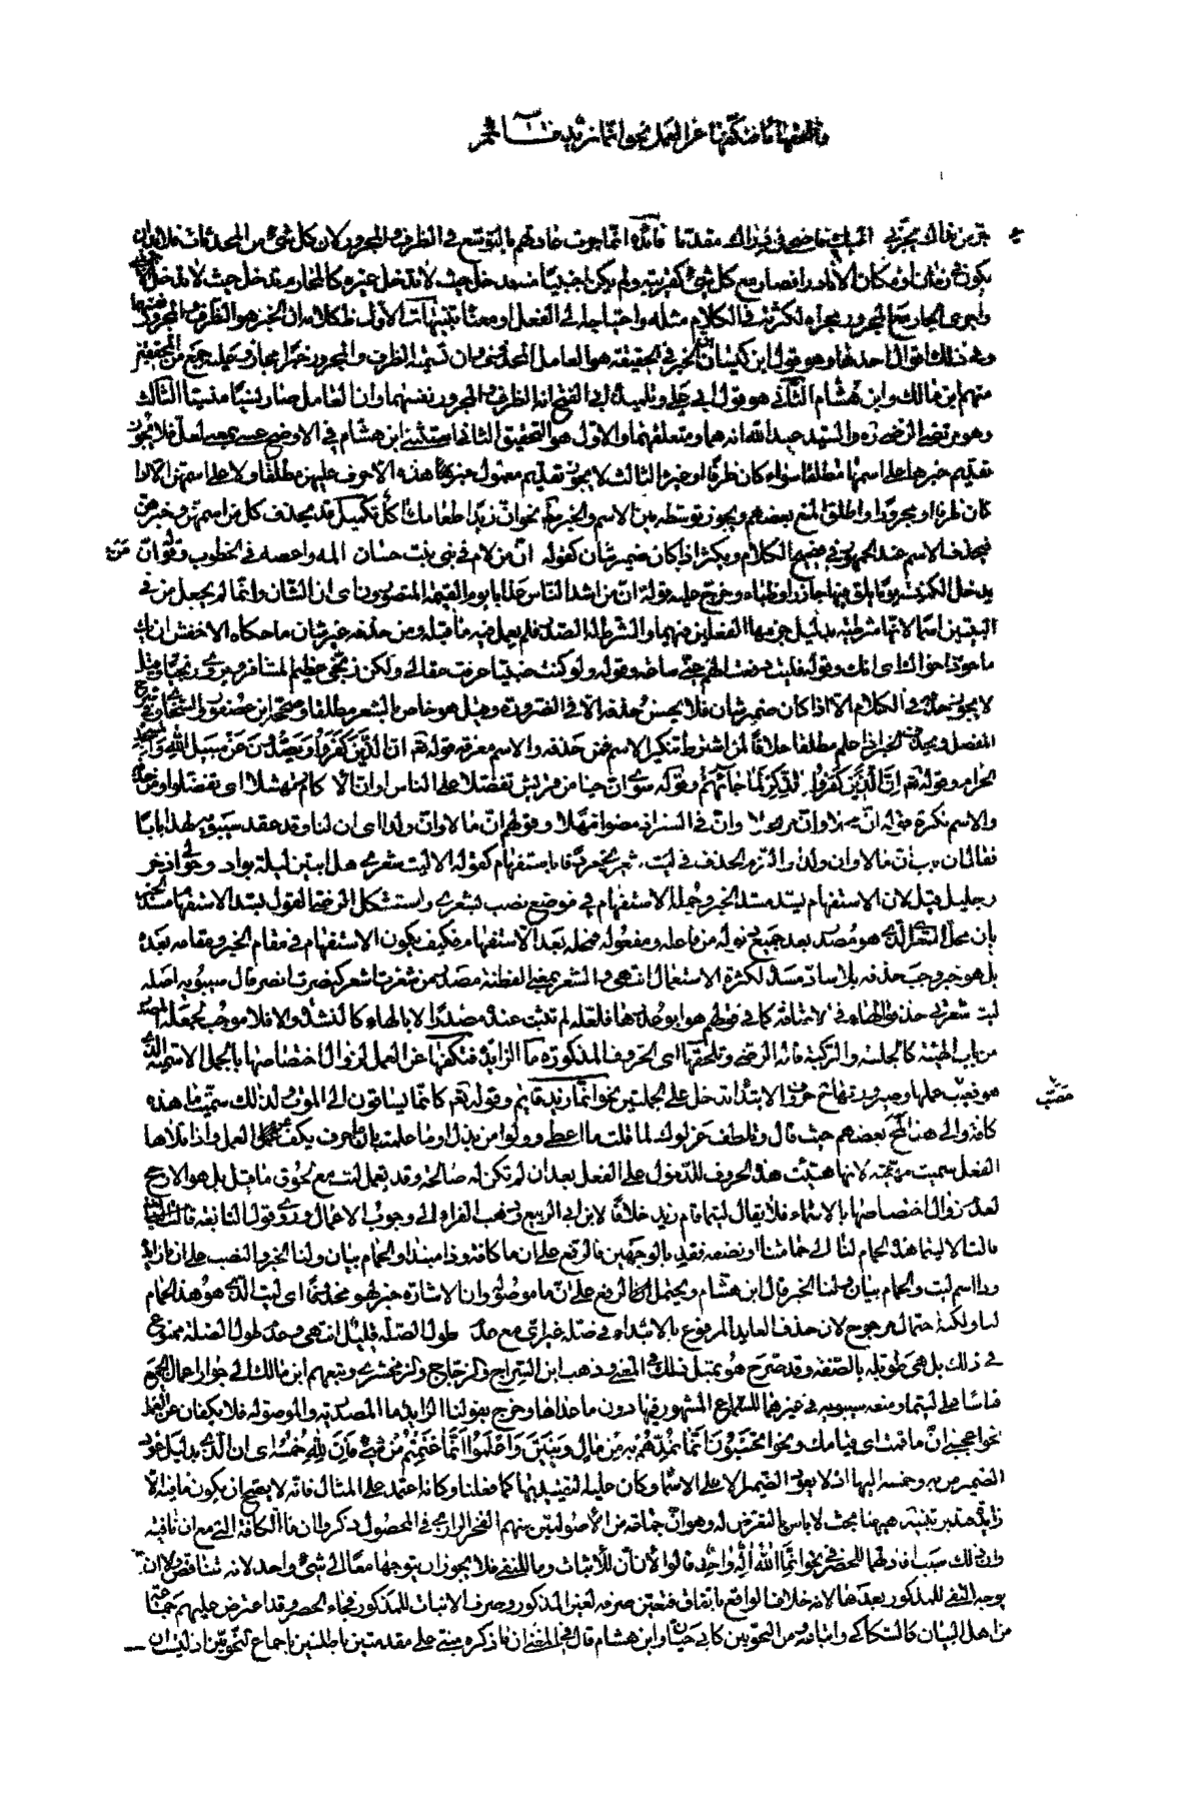 وتلحقها ما فتكفها عن العمل نحو انما زيد قائم
فائدة انما جوت عادتهم بالتوسع في الظرف والمجرور لان كل شئ من المحدثات فلا بد ان
يكون في زمان او مكان فصار مع كل شئ كقريبه ولم يكن اجنبيا منه فدخل حيث لا يدخل غيره كالمحارم يدخل حيث لا يدخل الاجنبي
واجرى الجار مع المجرور مجراه لكثرته في الكلام مثله واحتياجه الى الفعل او معناه تنبيهات الاول ظ كلامه ان الخبر هو الظرف والمجرور
وفي ذلك اقوال احدها وهو قول ابن كيسان ان الخبر في الحقيقة هو العامل المحذوف وان تسمية الظرف والمجرور خبرا مجاز وعليه جمع من المحققين
منهم ابن مالك وابن هشام الثاني هو قول ابي علي وتلميذه ابي الفتح انه الظرف والمجرور نفسهما وان العامل صار نسيا منسيا الثالث
وهو مرتضى الرضي ره والسيد عبد الله انه هما ومتعلقهما والاول هو التحقيق الثاني استثنى ابن هشام في الاوضح عسى ولعل فلا يجوز
تقديم خبرها على اسمها مطلقا سواء كان ظرفا او غيره الثالث لا يجوز تقديم معمول خبر هذه الاحرف عليهن مطلقا ولا على اسمهن الا اذا
كان ظرفا او مجرورا واطلق المنع بعضهم ويجوز توسطه بين الاسم والخبر نحو ان زيدا طعامك آكل تكميل قد يحذف كل من اسمهن وخبرهن
فيحذف الاسم عند الجمهور في فصيح الكلام ويكثر اذا كان ضمير شان كقوله ان من لام في بني بنت حسان المه واعصه في الخطوب وقوله ان من
يدخل الكنيسة يوما يلق فيها جآذرا وظباء وخرج عليه قوله ان من اشد الناس عذابا يوم القيمة المصورون اى ان الشان وانما لم يجعل من في
البيتين اسما لانها شرطية بدليل جزمها الفعلين فيهما والشرط له الصدر فلم يعمل فيه ما قبله ومن حذفه غير شان ما حكاه الاخفش ان بك
ماخوذ اخواك اى انك وقوله فليت دفعت الهم عني ساعة وقوله ولو كنت ضبيا عرفت قرابتي ولكن زنجي عظيم المشافر
لا يجوز حذفه في الكلام الا اذا كان ضمير شان فلا يحسن حذفه الا في الضرورة وقيل هو خاص بالشعر مطلقا وصححه ابن عصفور والسخاوي في شرح
المفصل ويحذف الخبر اذا علم مطلقا خلافا لمن اشترط تنكير الاسم فمن حذفه والاسم معرفة قوله تع ان الذين كفروا ويصدون عن سبيل الله والمسجد
الحرام وقوله تع ان الذين كفروا بالذكر لما جاءهم وقوله سوى ان حيا من قريش تفضلوا على الناس او ان الاكارم نهشلا اى تفضلوا ومن حذفه
والاسم نكرة قوله ان محلا وان مرتحلا وان في السفر اذ مضوا مهلا وقولهم ان مالا وان ولدا اى ان لنا وقد عقد سيبويه لهذا بابا
فقال باب ان مالا وان ولدا والتزم الحذف في ليت شعري مردفا باستفهام كقوله الا ليت شعري هل ابيتن ليلة بواد وحولي اذخر
وجليل قيل لان الاستفهام يسد مسد الخبر وجملة الاستفهام في موضع نصب بشعري واستشكل الرضي القول بسد الاستفهام مسد الخبر
بان محل الشعر الذي هو مصدر بعد جميع ذيوله من فاعله ومفعوله فمحله بعد الاستفهام فكيف يكون الاستفهام في مقام الخبر ومقامه بعده
بل هو خبر وجب حذفه بلا ساد مسده لكثرة الاستعمال انتهى والشعر بمعنى الفطنة مصدر من شعرت اشعر كنصرت انصر قال سيبويه اصله
ليت شعرتي حذفوا الهاء في الاضافة كما في قولهم هو ابو عذرها فلعله لم تثبت عنده مصدرا الا بالهاء كالنشدة والا فلا موجب لجعله المصدر
من باب الهيئة كالجلسة والركبة قاله الرضي وتلحقها اى الحروف المذكورة ما الزايدة فتكفها عن العمل لزوال اختصاصها بالجمل الاسمية الذي
هو موجب عملها وصيرورتها حروف الابتداء تدخل على الجملتين نحو انما زيد قائم وقوله تع كانما يساقون الى الموت ولذلك سميت ما هذه
كافة والى هذا لمح بعضهم حيث قال ولما قلت ما اعطى وولوا من بذل وما علمت بان حرف يكف عن العمل واذا تلاها
الفعل سميت مهيئة لانها هيأت هذه الحروف للدخول على الفعل بعد ان لم تكن له صالحة وقد تعمل ليت مع لحوق ما قيل بل هو الارجح
لعدم زوال اختصاصها بالاسماء فلا يقال ليتما قام زيد خلافا لابن ابي الربيع وذهب الفراء الى وجوب الاعمال وروى قول النابغة
قالت الا ليتما هذا الحمام لنا الى حمامتنا او نصفه فقد بالوجهين فالرفع على ان ما كافة وذا مبتدا والحمام بيان ولنا الخبر والنصب على ان ما زايدة
وذا اسم ليت والحمام بيان ولنا الخبر قال ابن هشام ويحتمل الرفع على ان ما موصولة وان الاشارة خبر لهو محذوفا اى ليت الذي هو هذا الحمام
لنا ولكنه احتمال مرجوح لان حذف العايد المرفوع بالابتداء في صلة غير اى مع عدم طول الصلة قليل انتهى وعدم طول الصلة ممنوع
في ذلك بل هي طويلة بالصفة وقد صرح هو بمثل ذلك في المغني وذهب ابن السراج والزجاج والزمخشري وتبعهم ابن مالك الى جواز اعمال الجميع
قياسا على ليتما ومنعه سيبويه في غيرها للسماع المشهور فيها دون ما عداها وخرج بقولنا الزايدة ما المصدرية والموصولة فلا يكفان عن العمل
نحو اعجبني ان ما قمت اى قيامك ونحو ايحسبون ان ما نمدهم به من مال وبنين واعلموا انما غنمتم من شئ فان لله خمسه اى ان الذي بدليل عود
الضمير من به وخمسه اليها اذ لا يعود الضمير الا على الاسماء وكان عليه التقييد بها كما فعلنا وكانه اعتمد على المثال فانه لا يصح ان يكون ما فيه الا
زايدة فتدبر تنبيه ههنا بحث لا باس بالتعرض له وهو ان جماعة من الاصوليين منهم الفخر الرازي في المحصول ذكروا ان ما الكافة التي مع ان نافية
وان ذلك سبب افادتها للحصر في نحو انما الله اله واحد قالوا لان ان للاثبات وما للنفي فلا يجوز ان يتوجها معا الى شئ واحد لانه تناقض ولا ان
يوجه النفي للمذكور بعدها لانه خلاف الواقع باتفاق فتعين صرفه لغير المذكور وصرف الاثبات للمذكور فجاء الحصر وقد اعترض عليهم جماعة
من اهل البيان كالسكاكي واتباعه ومن النحويين كابي حيان وابن هشام قال في المغني ان ما ذكره مبني على مقدمتين باطلتين باجماع النحويين اذ ليست ان